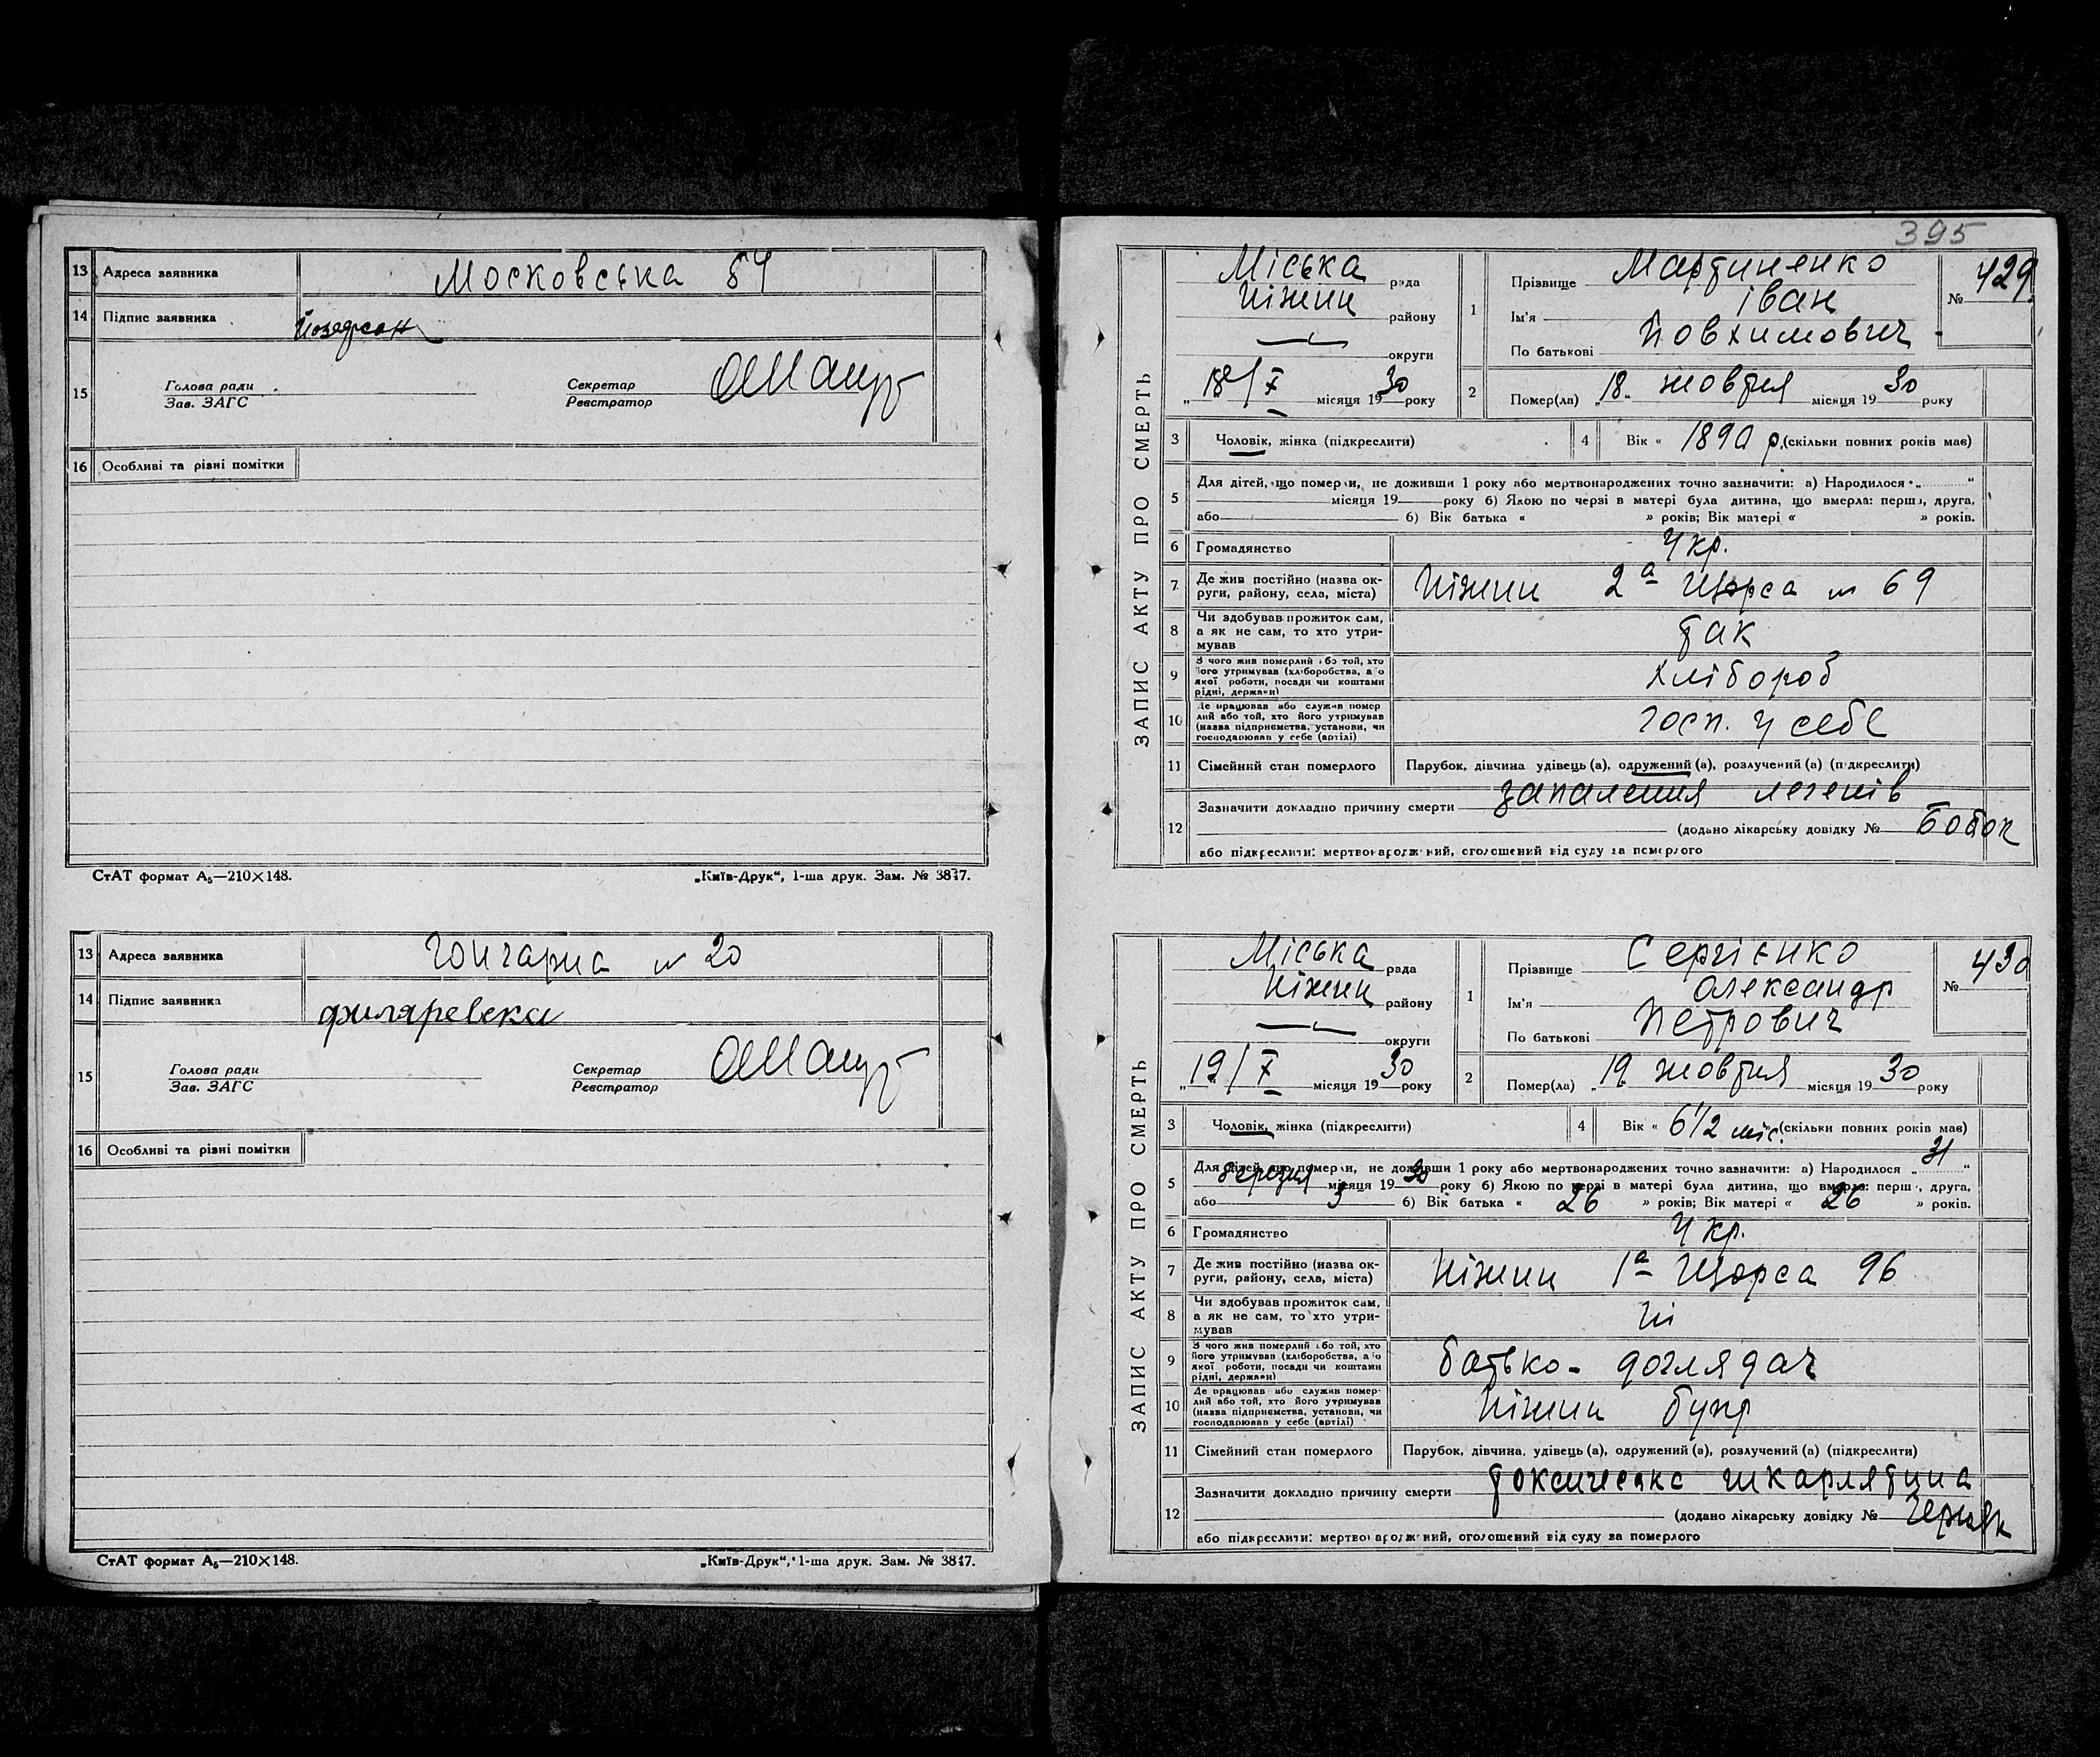 13 Адреса заявника Московська 84
14 Підпис заявника
15 Голова ради
Зав. ЗАГС
Секретар
Реєстратор
16 Особливі та різні помітки
СтАТ формат А₅—210×148. „Київ-Друк“, 1-ша друк. Зам. № 3847.
13 Адреса заявника Гончарна № 20
14 Підпис заявника филяревска
15 Голова ради
Зав. ЗАГС
Секретар
Реєстратор
16 Особливі та різні помітки
СтАТ формат А₅—210×148. „Київ-Друк“, 1-ша друк. Зам. № 3847.
395
ЗАПИС АКТУ ПРО СМЕРТЬ
Міська рада
Ніжин району
округи
„ 18 / X місяця 1930 року
1 Прізвище Мартиненко
Ім'я Іван
По батькові Йовхимович
№ 429
2 Помер(ла) „ 18 „ жовтня місяця 1930 року
3 Чоловік, жінка (підкреслити)
4 Вік « 1890 р. (скільки повних років має)
5 Для дітей, що померли, не доживши 1 року або мертвонароджених точно зазначити: а) Народилося „ “
місяця 19 року б) Якою по черзі в матері була дитина, що вмерла: перша, друга,
або б) Вік батька « » років; Вік матері « » років.
6 Громадянство Укр.
7 Де жив постійно (назва ок-
руги, району, села, міста) Ніжин 2а Щорса № 69
8 Чи здобував прожиток сам,
а як не сам, то хто утри-
мував так
9 З чого жив померлий або той, хто
його утримував (хліборобства, з о
якої роботи, посади чи коштами
рідні, держави) хлібороб
10 Де працював або служив помер
лий або той, хто його утримував
(назва підприємства, установи, чи
господарював у себе (артілі) госп. у себе
11 Сімейний стан померлого Парубок, дівчина удівець (а), одружений (а), розлучений (а) (підкреслити)
12 Зазначити докладно причину смерти запалення легенів
(додано лікарську довідку № Бобок
або підкреслити: мертвонароджений, оголошений від суду за померлого
ЗАПИС АКТУ ПРО СМЕРТЬ
Міська рада
Ніжин району
округи
„ 19 / X місяця 1930 року
1 Прізвище Сергієнко
Ім'я Олександр
По батькові Петрович
№ 430
2 Помер(ла) „ 19 „ жовтня місяця 1930 року
3 Чоловік, жінка (підкреслити)
4 Вік « 6 1/2 міс. (скільки повних років має)
5 Для дітей, що померли, не доживши 1 року або мертвонароджених точно зазначити: а) Народилося „ 31 “
березня місяця 1930 року б) Якою по черзі в матері була дитина, що вмерла: перша, друга,
або 3 б) Вік батька « 26 » років; Вік матері « 26 » років.
6 Громадянство Укр.
7 Де жив постійно (назва ок-
руги, району, села, міста) Ніжин 1а Щорса 96
8 Чи здобував прожиток сам,
а як не сам, то хто утри-
мував Ні
9 З чого жив померлий або той, хто
його утримував (хліборобства, з о
якої роботи, посади чи коштами
рідні, держави) батько - доглядач
10 Де працював або служив помер-
лий або той, хто його утримував
(назва підприємства, установи, чи
господарював у себе (артілі) Ніжин бупр
11 Сімейний стан померлого Парубок, дівчина, удівець (а), одружений (а), розлучений (а) (підкреслити)
12 Зазначити докладно причину смерти токсическа шкарлятина
(додано лікарську довідку № Черняк
або підкреслити: мертвонароджений, оголошений від суду за померлого